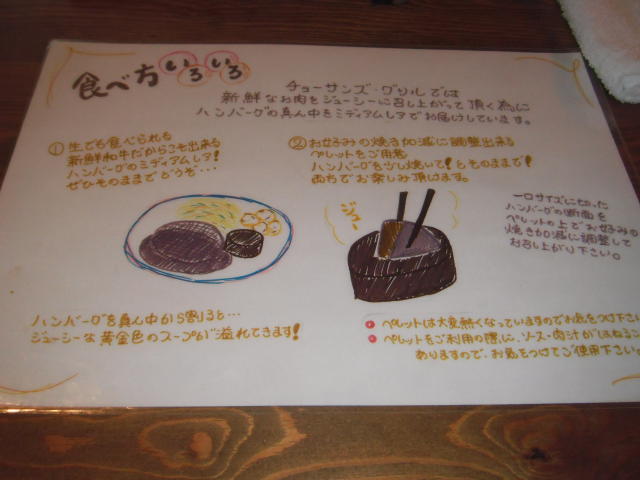 食べ方いろいろ
チョーサンズ・グリルでは
新鮮なお肉をジューシーに召し上がって頂く為に
ハンバーグの真ん中をミディアムレアでお届けしています。
①生でも食べられる
新鮮和牛だからこそ出来る
ハンバーグのミディアムレア!
ぜひそのままでどうぞ…
②お好みの焼き加減に調整出来る
ペレットをご用意
ハンバーグを少し焼いて!もそのまま!も
両方でお楽しみ頂けます。
ジュー
一口サイズに切った
ハンバーグの断面を
ペレットの上でお好みの
焼き加減に調整して
お召し上がり下さい。
ハンバーグを真ん中から割ると…
ジューシーな黄金色のスープが溢れてきます!
ペレットは大変熱くなっていますのでお気をつけ下さい
ペレットをご利用の際に、ソース・肉汁がはねること
ありますので、お気をつけてご使用下さい。